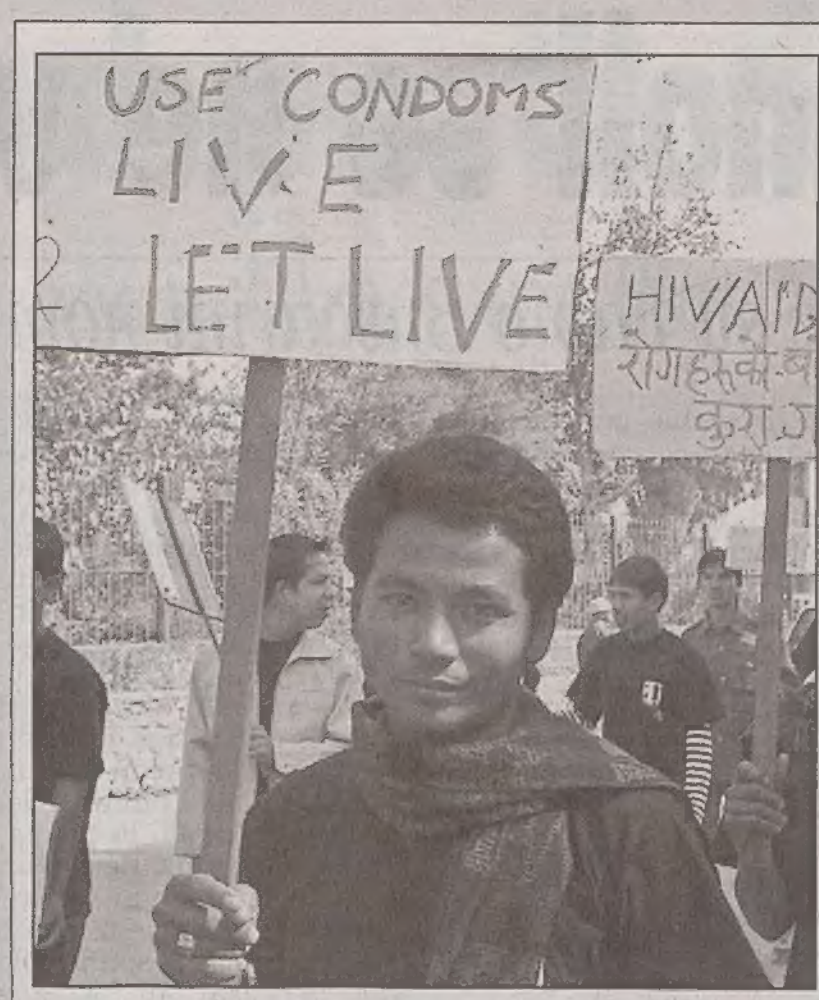 USE CONDOMS
LIVE
& LET LIVE
HIV/AID
रोगहरुको
कुरा